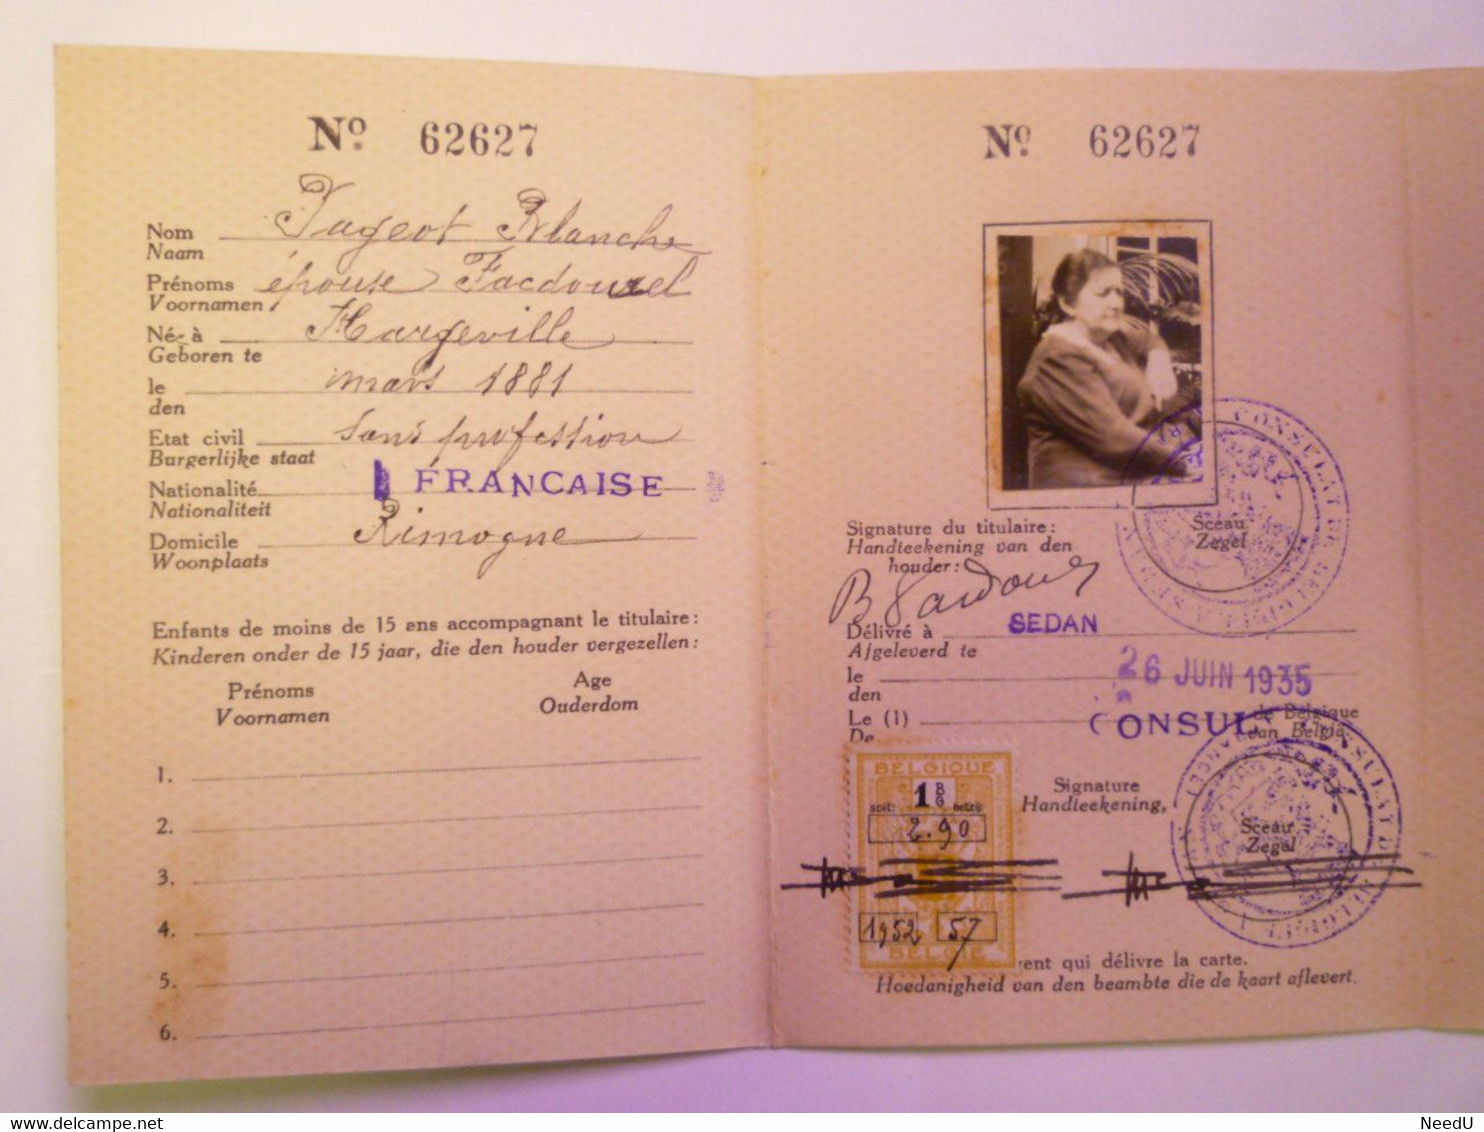 Nº 62627
Nom Pageot Blanche
Naam
Prénoms épouse Facdouel
Voornamen
Né à Hargeville
Geboren te
le mars 1881
den
Etat civil Sans profession
Burgerlijke staat
Nationalité FRANCAISE
Nationaliteit
Domicile Rimogne
Woonplaats
Enfants de moins de 15 ans accompagnant le titulaire :
Kinderen onder de 15 jaar, die den houder vergezellen :
Prénoms Age
Voornamen Ouderdom
1.
2.
3.
4.
5.
6.
Nº 62627
CONSULAT DE BELGIQUE
Sceau
Zegel
Signature du titulaire :
Handteekening van den
houder :
Délivré à SEDAN
Afgeleverd te
le 26 JUIN 1935
den
Le (1) CONSUL de Belgique
De van België
BELGIQUE
soit: 1 B G hetzij:
2.90
1952 57
BELGIË
Signature
Handteekening,
CONSULAT DE BELGIQUE
Sceau
Zegel
qui délivre la carte.
Hoedanigheid van den beambte die de kaart aflevert.
www.delcampe.net
NeedU